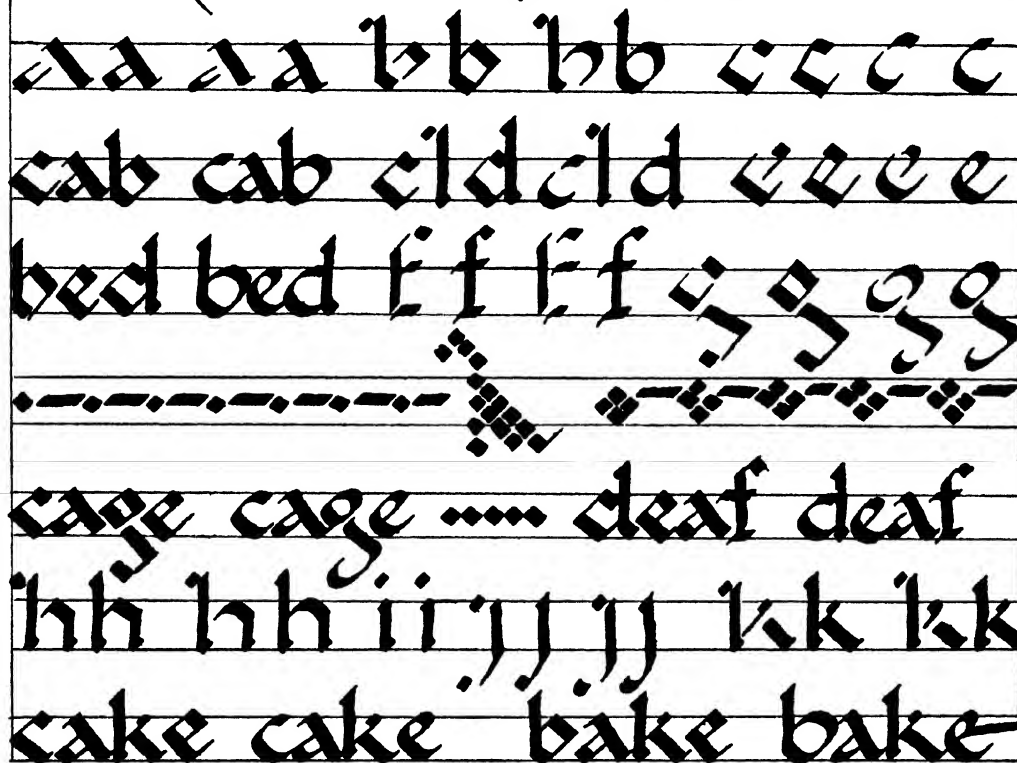 a a a a b b b b c c c c
cab cab c l d c l d e e e e
bed bed f f f f g g g g
cage cage deaf deaf
h h h h i i j j j j k k k k
cake cake bake bake